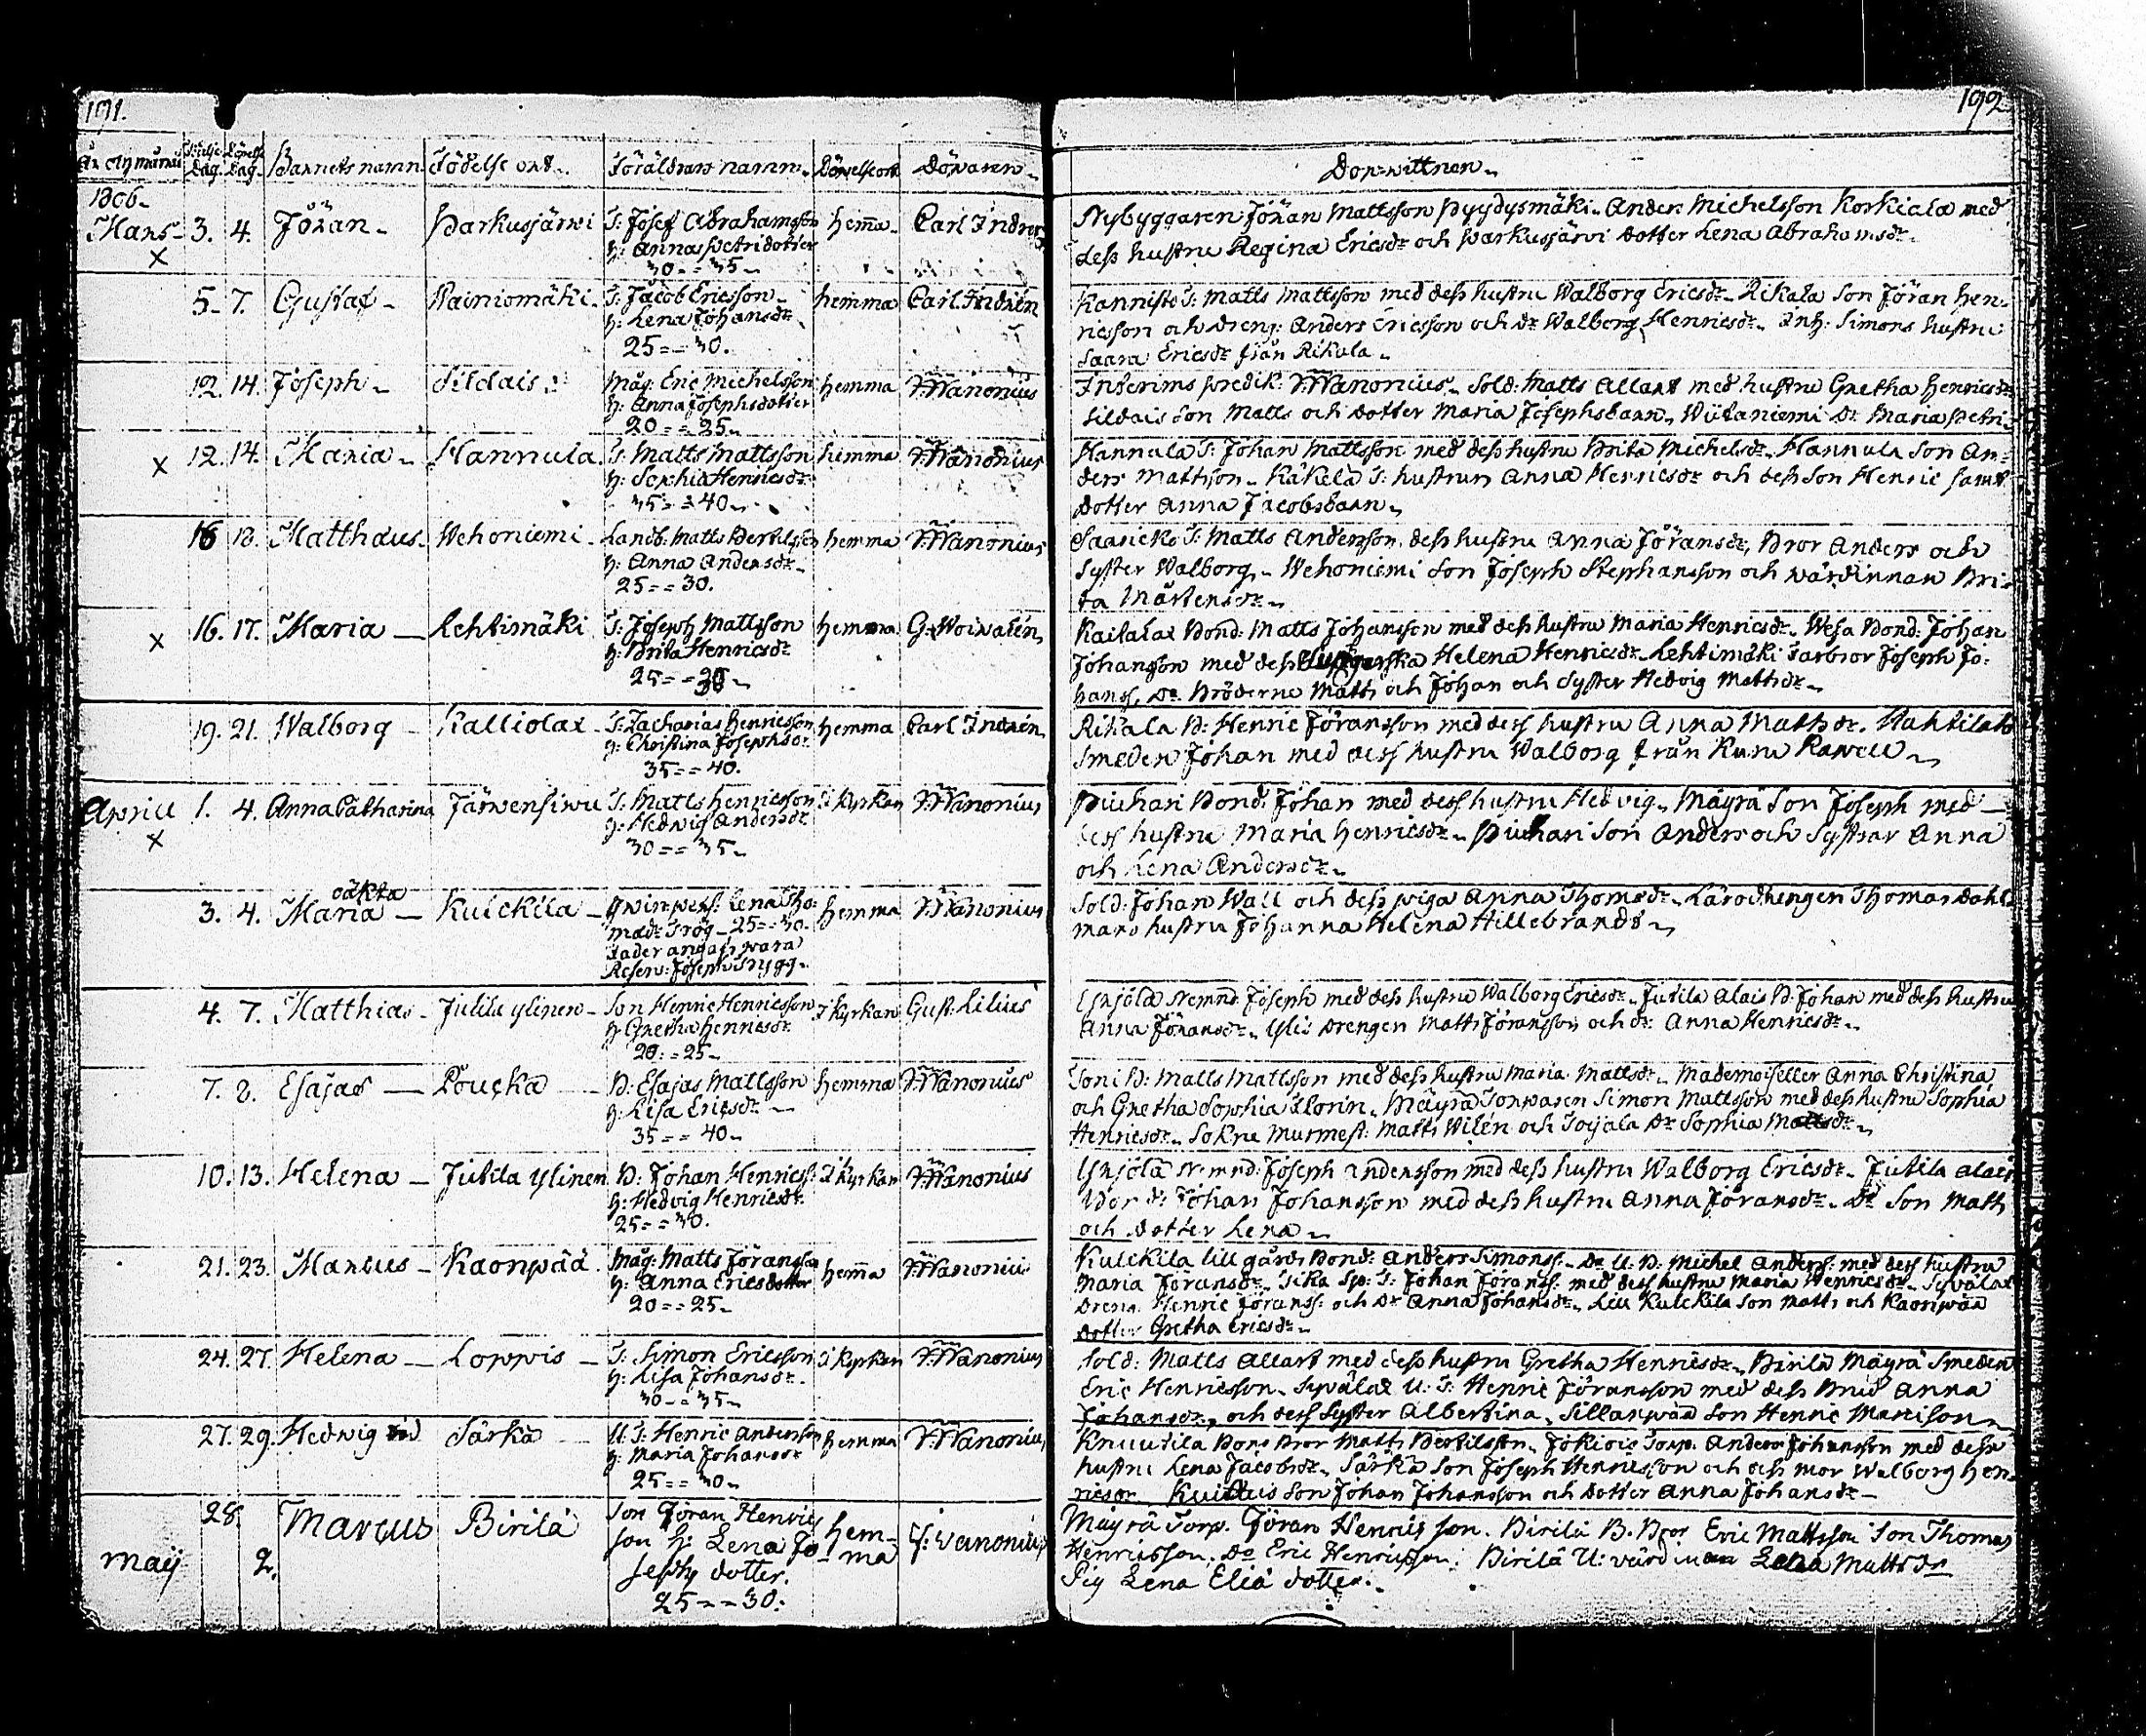 191.
År och månad Födelse Dag. Döpelse Dag. Barnets namn Födelse ort. Föräldrars namn. Döpelse ort Döparen
1806.
Mars 3. 4. Jöran Harkusjärwi T: Josef Abrahamsson hem̄a Carl Indren
× h: Anna Petridotter
30 = = 35
5. 7. Gustaf Painiomäki T: Jacob Ericsson hemma Carl Indrén
h: Lena Johansdr
25 = = 30.
12. 14. Joseph Sildais Måg: Eric Michelsson hemma F: Wanonius
h: Anna Josephsdotter
20 = = 25
× 12. 14. Maria Hannula T: Matts Mattsson hemma F: Wanonius
h: Sophia Henricsdr
35 = = 40
16 18. Matthæus Wehoniemi Landb: Matts Bertilsson hemma F: Wanonius
h: Anna Andersdr
25 = = 30.
× 16. 17. Maria Lehtimäki T: Joseph Mattsson hemma G: Woivalén
h: Brita Henricsdr
25 = = 30
19. 21. Walborg Kalliolax T: Zacharias Henricsson hemma Carl Indrén
h: Christina Josephsdr
35 = = 40.
Aprill 1. 4. Anna Catharina Järwensiwu T: Matts Henricsson I Kyrkan F: Wanonius
× h: Hedvig Andersdr
30 = = 35
oäkta
3. 4. Maria Kulckila Qwinspers: Lena Tho- hemma F: Wanonius
masdr Frög 25 = = 30.
Fader angafs wara
Reserv: Joseph Snygg
4. 7. Matthias Jutila ylinen Son Henric Henricsson I Kyrkan Gust: Lilius
h: Gretha Henricsdr
20 = = 25
7. 8. Esajas Loucka B: Esajas Mattsson hemma F: Wanonius
h: Lisa Ericsdr
35 = = 40
10. 13. Helena Jutila ylinen B: Johan Henricss: I Kyrkan F: Wanonius
h: Hedvig Henricsdr
25 = = 30.
21. 23. Marcus Kaonpää Måg: Matts Jöransson hem̄a F: Wanonius
h: Anna Ericsdotter
20 = = 25
24. 27. Helena Loppis T: Simon Ericsson I Kyrkan F: Wanonius
h: Lisa Johansdr
30 = = 35
27. 29. Hedwig Särkä U: T: Henric Andersson hemma F: Wanonius
h: Maria Johansdr
25 = = 30
28. Marcus Birilä Son Jöran Henrics hem- F: Vanonius
son h: Lena Jo- ma
maij 2. sephs dotter.
25 = = 30.
192
Dop-wittnen
Nybyggaren Jöran Mattsson Pyydysmäki. Anders Michelsson Korkiala med
dess hustru Regina Ericsdr och Harkusjärvi dotter Lena Abrahamsdr
Kannisto T: Matts Mattsson med dess hustru Walborg Ericsdr Rikala Son Jöran Hen-
ricsson och dreng: Anders Ericsson och dr Walborg Henricsdr Inh: Simons hustru
Saara Ericsdr från Rikala
Interims predik: F: Wanonius Sold: Matts Allart med hustru Gretha Henricsdr
Sildais Son Matts och dotter Maria Josephsbarn Wijtaniemi Dr Maria Petri
Hannula T: Johan Mattsson med dess hustru Brita Michelsdr Hannula Son An-
ders Mattsson Käkelä T: hustrun Anna Henricsdr och dess Son Henric samt
dotter Anna Jacobsbarn
Saaricko T: Matts Andersson, dess hustru Anna Jöransdr, Bror Anders och
Syster Walborg Wehoniemi Son Joseph Stephansson och wärdinnan Bri-
ta Mårtensdr
Kailalax Bond: Matts Johansson med dess hustru Maria Henricsdr Wesa Bond: Johan
Johansson med dess Helena Henricsdr Lehtimäki Farbror Joseph Jo-
hanss, Do Bröderne Matts och Johan och Syster Hedvig Mattsdr
Rikala B: Henric Jöransson med dess hustru Anna Mattsdr
Smeden Johan med dess hustru Walborg från
Piuhari Bond: Johan med dess hustru Hedvig Mäyrä Son Joseph med
dess hustru Maria Henricsdr Piuhari Son Anders och Systrar Anna
och Lena Andersdr
Sold: Johan Wall och dess piga Anna Thomsdr Lärodrengen Thomas Dahl-
mans hustru Johanna Helena Hillebrandt
Yrjölä Nemnd: Joseph med dess hustru Walborg Ericsdr Jutila Alais B: Johan med dess hustru
Anna Jöransdr Ylis Drengen Matts Jöransson och dr Anna Henricsdr
Toni B: Matts Mattsson med dess hustru Maria Mattsdr Mademoiseller Anna Christina
och Gretha Sophia Florin Mäyrä Torparen Simon Mattsson med dess hustru Sophia
Henricsdr Sokne Murmest: Matts Wilén och Toijala Dr Sophia Mattsdr
Yrjölä Nemnd: Joseph Andersson med dess hustru Walborg Ericsdr Jutila Alais
Johan Johansson med dess hustru Anna Jöransdr Dr Son Matts
och dotter Lena
Kulckila lill gårds Bond: Anders Simonss: Do U: B: Michel Anderss: med dess hustru
Maria Jöransdr T: Johan Jöranss: med dess hustru Maria Henricsdr Syvälax
Dreng Henric Jöranss: och Dr Anna Johansdr Lill Kulckila Son Matts och Kaonpää
dotter Gretha Ericsdr
Sold: Matts Allart med dess hustru Gretha Henricsdr Birilä Mäyrä Smeden
Eric Henricsson Syvälax U: T: Henric Jöransson med dess Brud Anna
Johansdr, och dess Syster Albertina, Sillanpää Son Henric Marcison
Knuutila Bond Bror Matts Bertilsson Jokiois Torp. Anders Johansson med dess
hustru Lena Jacobsdr Särkä Son Joseph Henricsson och dess mor Walborg Hen-
ricsdr Son Johan Johansson och dotter Anna Johansdr
Mäyrä Torp. Jöran Henricsson. Birilä B. Bror Eric Mattsson Son Thomas
Henricsson. Do Eric Henricsson. Birilä U: värdinan Lena Mattsdr
Pig Lena Eliä dotter.